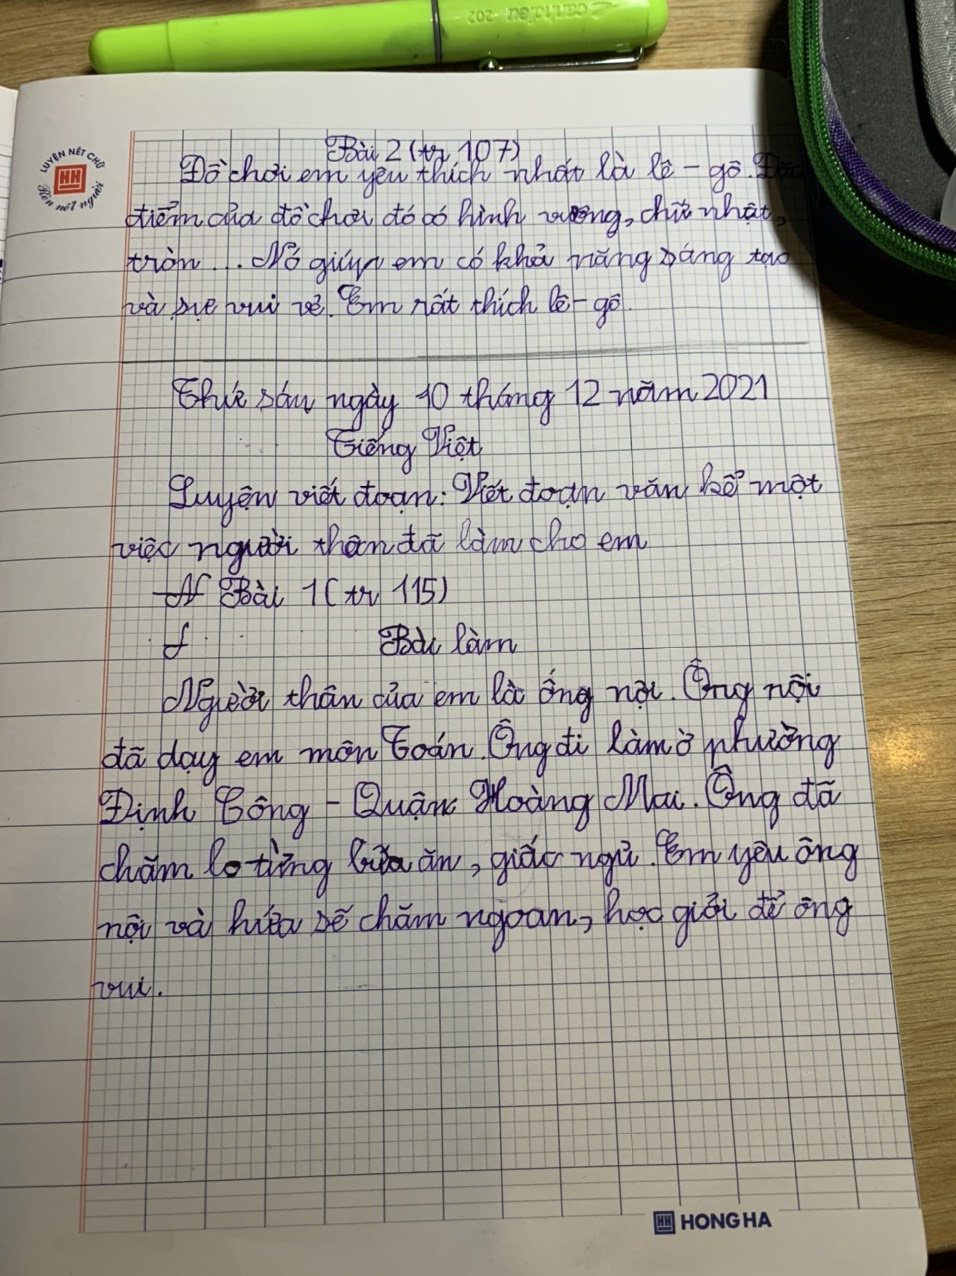 Candeu 202
LUYỆN NẾT CHỮ
HH
Rèn nết người
Bài 2 (tr 107)
Đồ chơi em yêu thích nhất là lê - gô. Đặc
điểm của đồ chơi đó có hình vuông, chữ nhật,
tròn... Nó giúp em có khả năng sáng tạo
và sự vui vẻ. Em rất thích lê - gô.
Thứ sáu ngày 10 tháng 12 năm 2021
Tiếng Việt
Luyện viết đoạn: Viết đoạn văn kể một
việc người thân đã làm cho em
Bài 1 (tr 115)
Bài làm
Người thân của em là ông nội. Ông nội
đã dạy em môn Toán. Ông đi làm ở phường
Định Công - Quận Hoàng Mai. Ông đã
chăm lo từng bữa ăn, giấc ngủ. Em yêu ông
nội và hứa sẽ chăm ngoan, học giỏi để ông
vui.
HH HONG HA